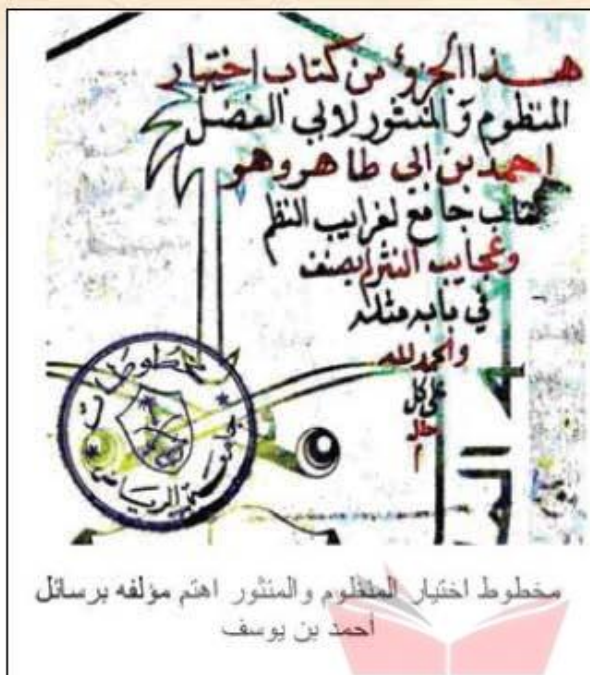 هذا الجزؤ من كتاب اختيار
المنظوم والمنثور لابي الفضل
احمد بن ابي طاهر وهو
كتاب جامع لغرايب النظم
وعجايب النثر لم يصنف
في بابه مثله
والحمد لله
على كل
حال
مخطوطات
جامعة الرياض
مخطوط اختيار المنظوم والمنثور اهتم مؤلفه برسائل
أحمد بن يوسف